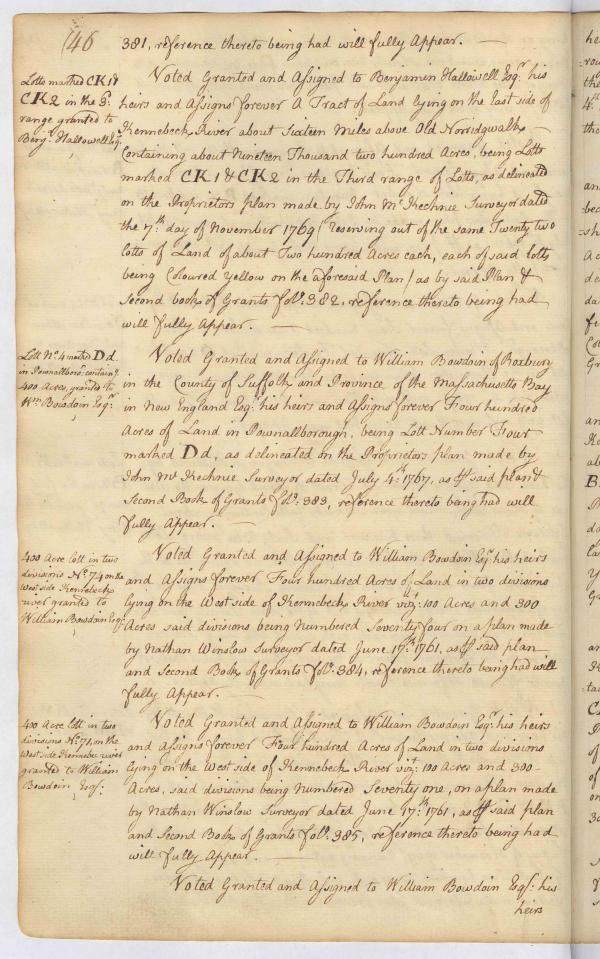 146
381, reference thereto being had will fully Appear. —
Lotts marked CK1 &
CK2 in the 3d:
range granted to
Benja. Hallowell Esqr.
Voted Granted and Assigned to Benjamin Hallowell Esqr. his
heirs and Assigns forever A Tract of Land lying on the East side of
Kennebeck River about Sixteen Miles above Old Norridgwalk
Containing about Nineteen Thousand two hundred Acres, being Lotts
marked CK1 & CK2 in the Third range of Lotts, as delineated
on the Proprietors plan made by John Mc.Kechnie Surveyor dated
the 7th. day of November 1769 (reserving out of the same Twenty two
lotts of Land of about Two hundred Acres each, each of said lotts
being Coloured Yellow on the aforesaid Plan) as by said Plan &
Second book of Grants folo. 382, reference thereto being had
will fully Appear. —
Lott No. 4 marked Dd.
in Pownallboro. containg.
400 Acres, granted to
Wm. Bowdoin Esqr.
Voted Granted and Assigned to William Bowdoin of Roxbury
in the County of Suffolk and Province of the Massachusetts Bay
in New England Esqr. his heirs and Assigns forever Four hundred
Acres of Land in Pownallborough, being Lott Number Four
marked Dd, as delineated on the Proprietors plan made by
John Mc Kechnie Surveyor dated July 4th. 1767, as ⅌ said plan &
Second Book of Grants folo. 383, reference thereto being had will
fully Appear. —
400 Acre lott in two
divisions No. 74 on the
West side Kennebeck
river granted to
William Bowdoin Esqr.
Voted Granted and Assigned to William Bowdoin Esqr. his heirs
and Assigns forever Four hundred Acres of Land in two divisions
lying on the West side of Kennebeck River vizt: 100 Acres and 300
Acres said divisions being Numbered Seventy four on a plan made
by Nathan Winslow Surveyor dated June 17th. 1761, as ⅌ said plan
and Second Book of Grants folo. 384, reference thereto being had will
fully Appear. —
400 Acre lott in two
divisions No. 71, on the
West side Kennebec river
granted to William
Bowdoin Esqr:
Voted Granted and Assigned to William Bowdoin Esqr. his heirs
and Assigns forever Four hundred Acres of Land in two divisions
lying on the West side of Kennebeck River vizt: 100 Acres and 300
Acres, said divisions being Numbered Seventy one, on a plan made
by Nathan Winslow Surveyor dated June 17th. 1761, as ⅌ said plan
and Second Book of Grants folo. 385, reference thereto being had
will fully Appear. —
Voted Granted and Assigned to William Bowdoin Esqr: his
heirs